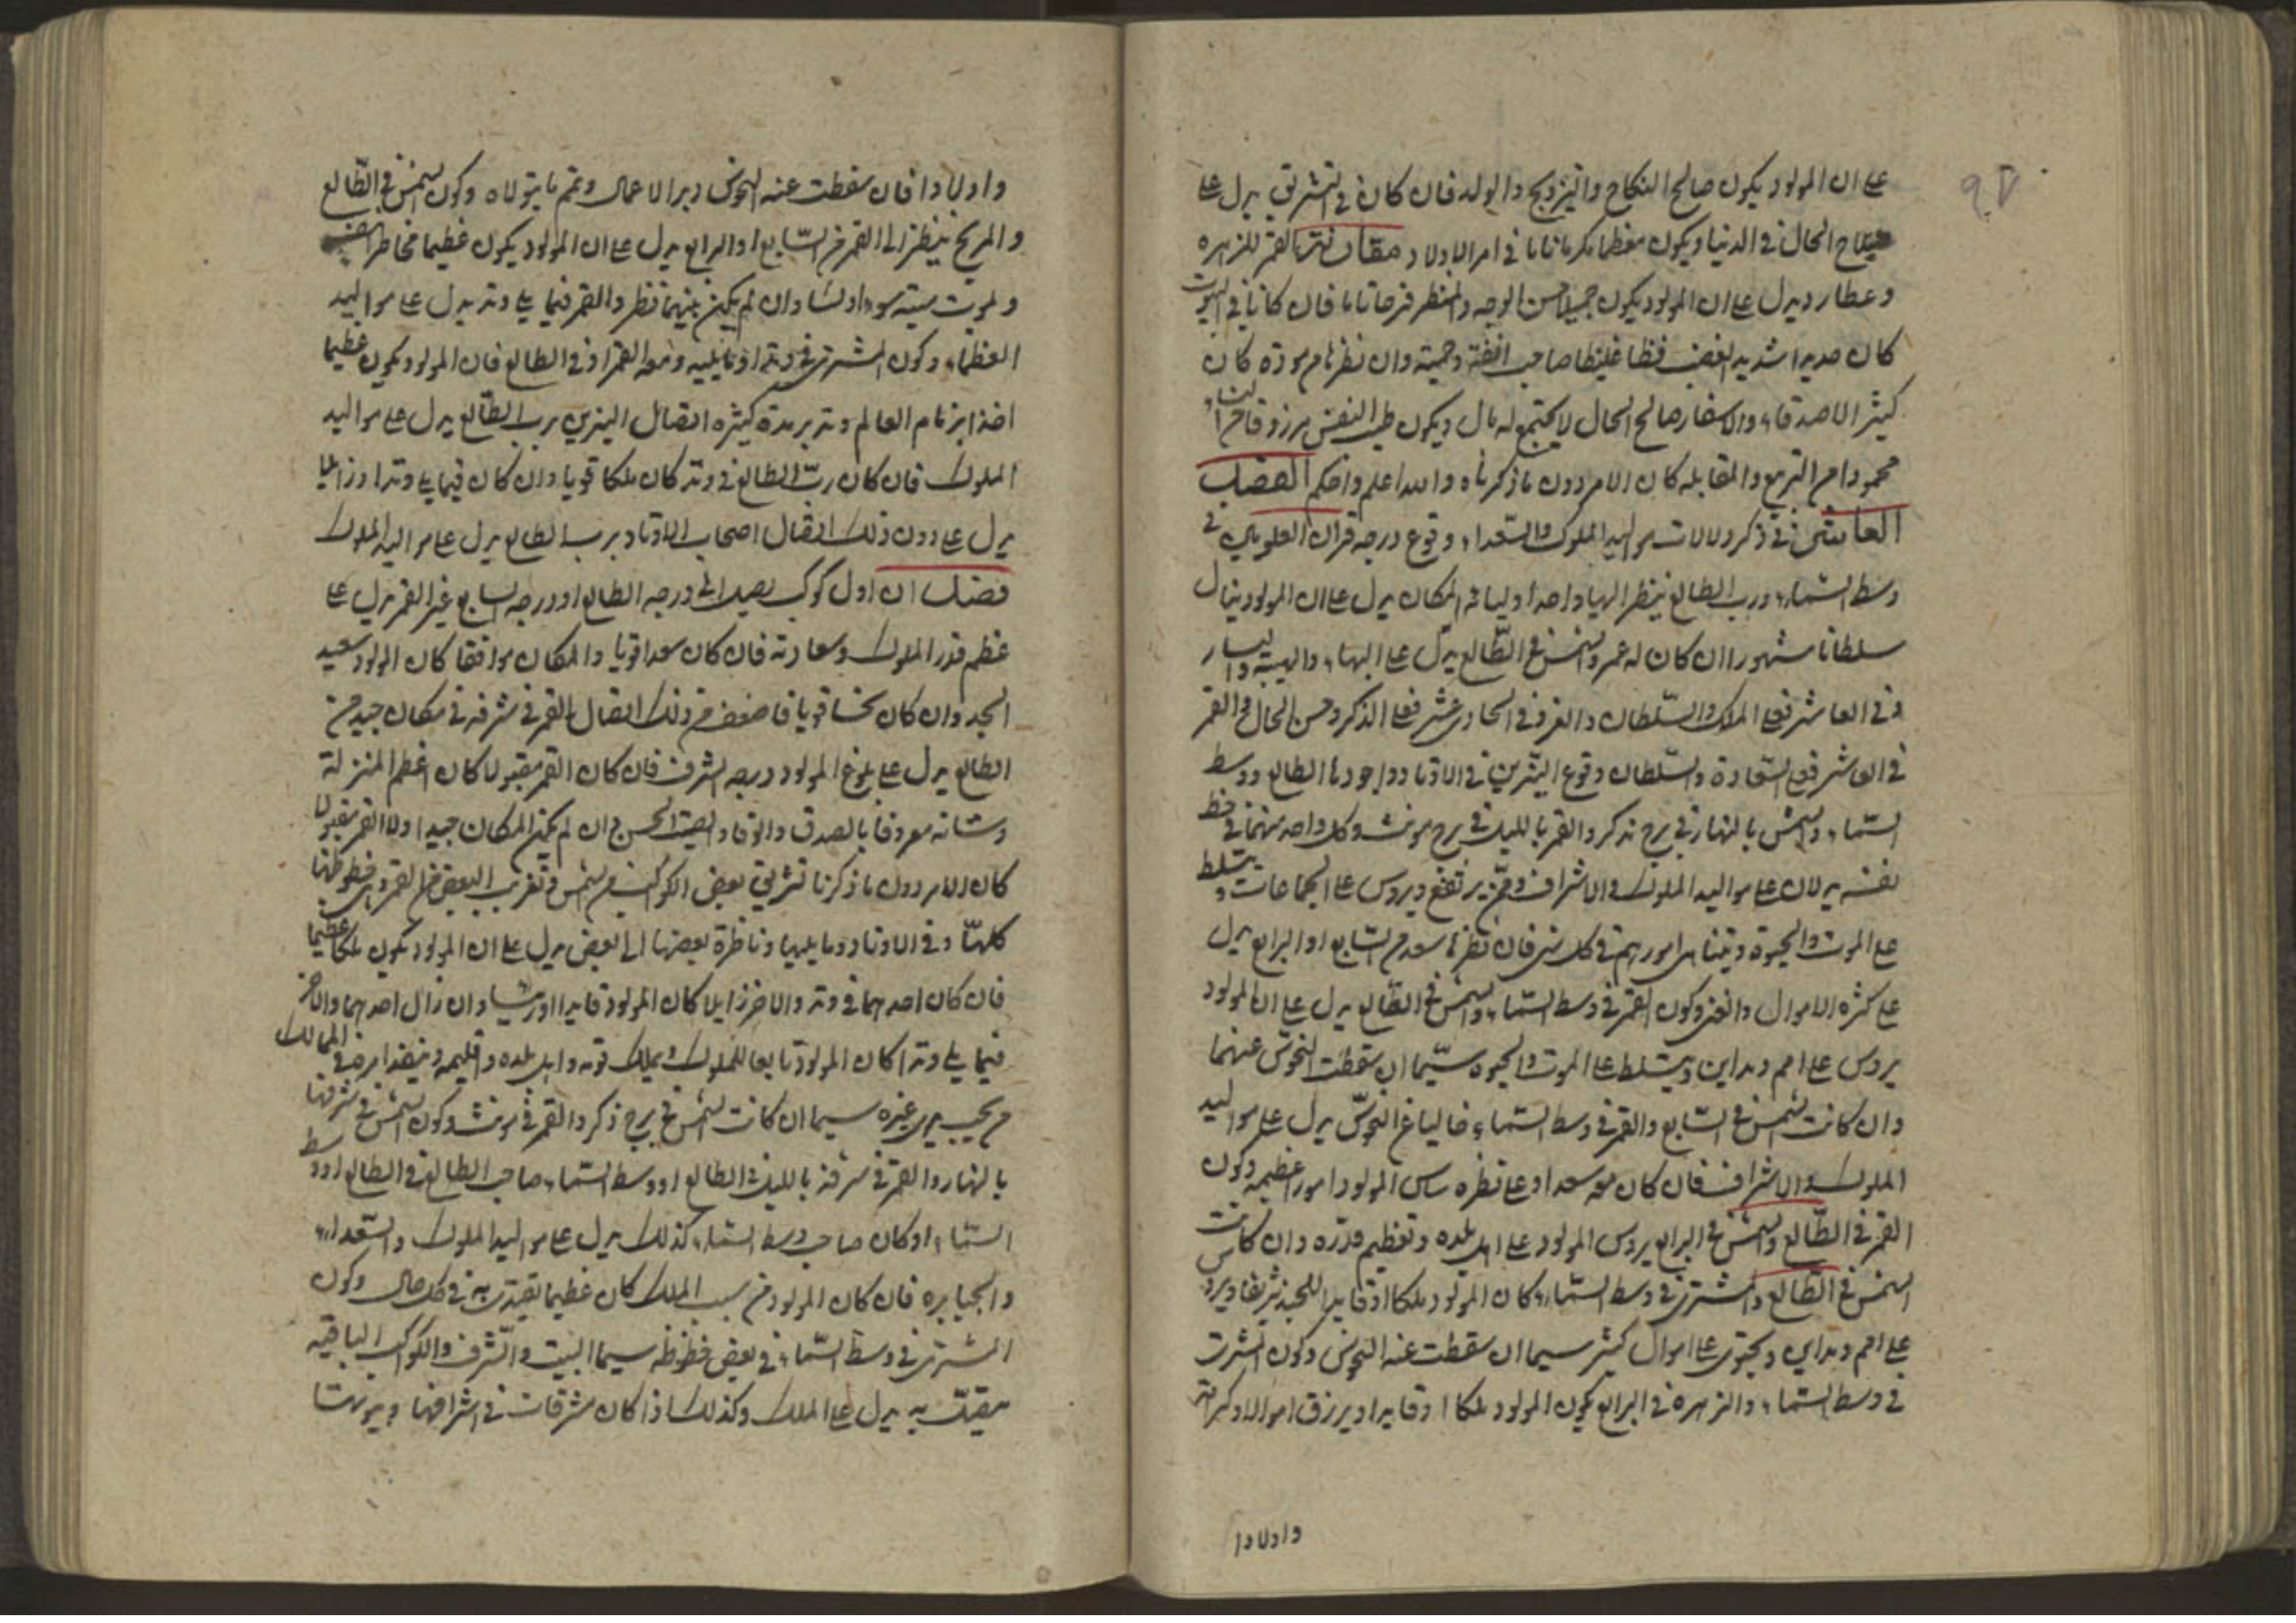 على ان المولود يكون صالح النكاح والتزويج والولد فان كان في التشريق يدل على
صلاح الحال في الدنيا ويكون معظما مكرما تاما في امر الاولاد مقارنة القمر للزهرة
وعطارد يدل على ان المولود يكون جميلا حسن الوجه والمنظر فرحانا فان كانا في البيوت
كان مديرا شديد الغضب فظا غليظا صاحب انفة وحمية وان نظرهم مودة كان
كثير الاصدقاء والاسفار صالح الحال لا يجتمع له مال ويكون طيب النفس مرزوقا من النساء
محمودا من التربيع والمقابله كان الامر دون ما ذكرناه والله اعلم واحكم الفصل
العاشر في ذكر دلالات مواليد الملوك والسعداء وقوع درجه قران العلويين في
وسط السماء ورب الطالع ينظر اليها واحدا وليا في المكان يدل على ان المولود ينال
سلطانا مشهورا ان كان له عمر والشمس في الطالع يدل على البهاء والهيبة واليسار
وفي العاشر فعلى الملك والسلطان والعز وفي الحادي عشر فعلى الذكر وحسن الحال والقمر
في العاشر فعلى السعادة والسلطان وقوع النيرين في الاوتاد واجودها الطالع ووسط
السماء والشمس بالنهار في برج مذكر والقمر بالليل في برج مونث وكل واحد منهما في حظ
نفسه يدلان على مواليد الملوك والاشراف وممن يرتفع ويروس على الجماعات ويتسلط
على الموت والحيوة ويتناهى امورهم في كل شي فان نظرها سعد من السابع او الرابع يدل
على كثره الاموال والعز وكون القمر في وسط السماء والشمس في الطالع يدل على ان المولود
يروس على امم ومداين ويتسلط على الموت والحيوه سيما ان سقطت النحوس عنهما
وان كانت الشمس في السابع والقمر في وسط السماء خاليا عن النحوس يدل على مواليد
الملوك والاشراف فان كان معه سعد او على نظره ساس المولود امور عظيمه وكون
القمر في الطالع والشمس في الرابع يروس المولود على اهل بلده وتعظيم قدره وان كانت
الشمس في الطالع والمشتري في وسط السماء كان المولود ملكا او قايدا للجند شريفا ويروس
على امم ومداين ويحتوى على اموال كثير سيما ان سقطت عنه النحوس وكون المشترى
في وسط السماء والزهره في الرابع يكون المولود ملكا او قايدا ويرزق اموالا وكرامة
واولادا
واولادا فان سقطت عنه النحوس دبر الاعمال وتم ما يتولاه وكون الشمس في الطالع
والمريخ ينظر الى القمر من السابع او الرابع يدل على ان المولود يكون عظيما مخاطرا بنفسه
ويموت ميتة سوء وان لم يكن بينهما نظر والقمر فيما يلى وتد يدل على مواليد
العظماء وكون المشترى في وتد او ما يليه ومعه القمر او في الطالع فان المولود يكون عظيما
اخذا بزمام العالم وتدبر مدة كثيره اتصال النيرين برب الطالع يدل على مواليد
الملوك فان كان رب الطالع في وتد كان ملكا قويا وان كان فيما يلى وتدا او زايلا
يدل على دون ذلك اتصال اصحاب الاوتاد برب الطالع يدل على مواليد الملوك
فصل ان اول كوكب يصير الى درجه الطالع او درجه السابع غير القمر يدل على
عظم قدر الملوك وسعادته فان كان سعدا قويا والمكان موافقا كان المولود سعيد
الجد وان كان نحسا قويا فاضعف من ذلك اتصال القمر في شرفه في مكان جيد من
الطالع يدل على بلوغ المولود درجه الشرف فان كان القمر مقبولا كان اعظم المنزلة
وشانه معروفا بالصدق والوفاء والصيت الحسن وان لم يكن المكان جيدا ولا القمر مقبولا
كان الامر دون ما ذكرنا تشريق بعض الكواكب من الشمس وتغريب البعض من القمر وفي حظوظها
كلها وفي الاوتاد وما يليها وناظرة بعضها الى بعض يدل على ان المولود يكون ملكا عظيما
فان كان احدهما في وتد والاخر زايلا كان المولود قايدا او رئيسا وان زال احدهما والاخر
فيما يلى وتدا كان المولود تابعا للملوك ويملك قومه واهل بلده واقليمه وينفذ امره في الممالك
سيما ان كانت الشمس في برج ذكر والقمر في مونث وكون الشمس في شرفها
بالنهار والقمر في شرفه بالليل في الطالع او وسط السماء وصاحب الطالع في الطالع او وسط
السماء او كان صاحب وسط السماء كذلك يدل على مواليد الملوك والسعداء
والجبابره فان كان المولود من سبب الملك كان عظيما يقتدى به في كل حال وكون
المشترى في وسط السماء في بعض حظوظه سيما البيت والشرف والكواكب الباقيه
متصلة به يدل على الملك وكذلك اذا كان مشرقات في اشرافها وبيوتها